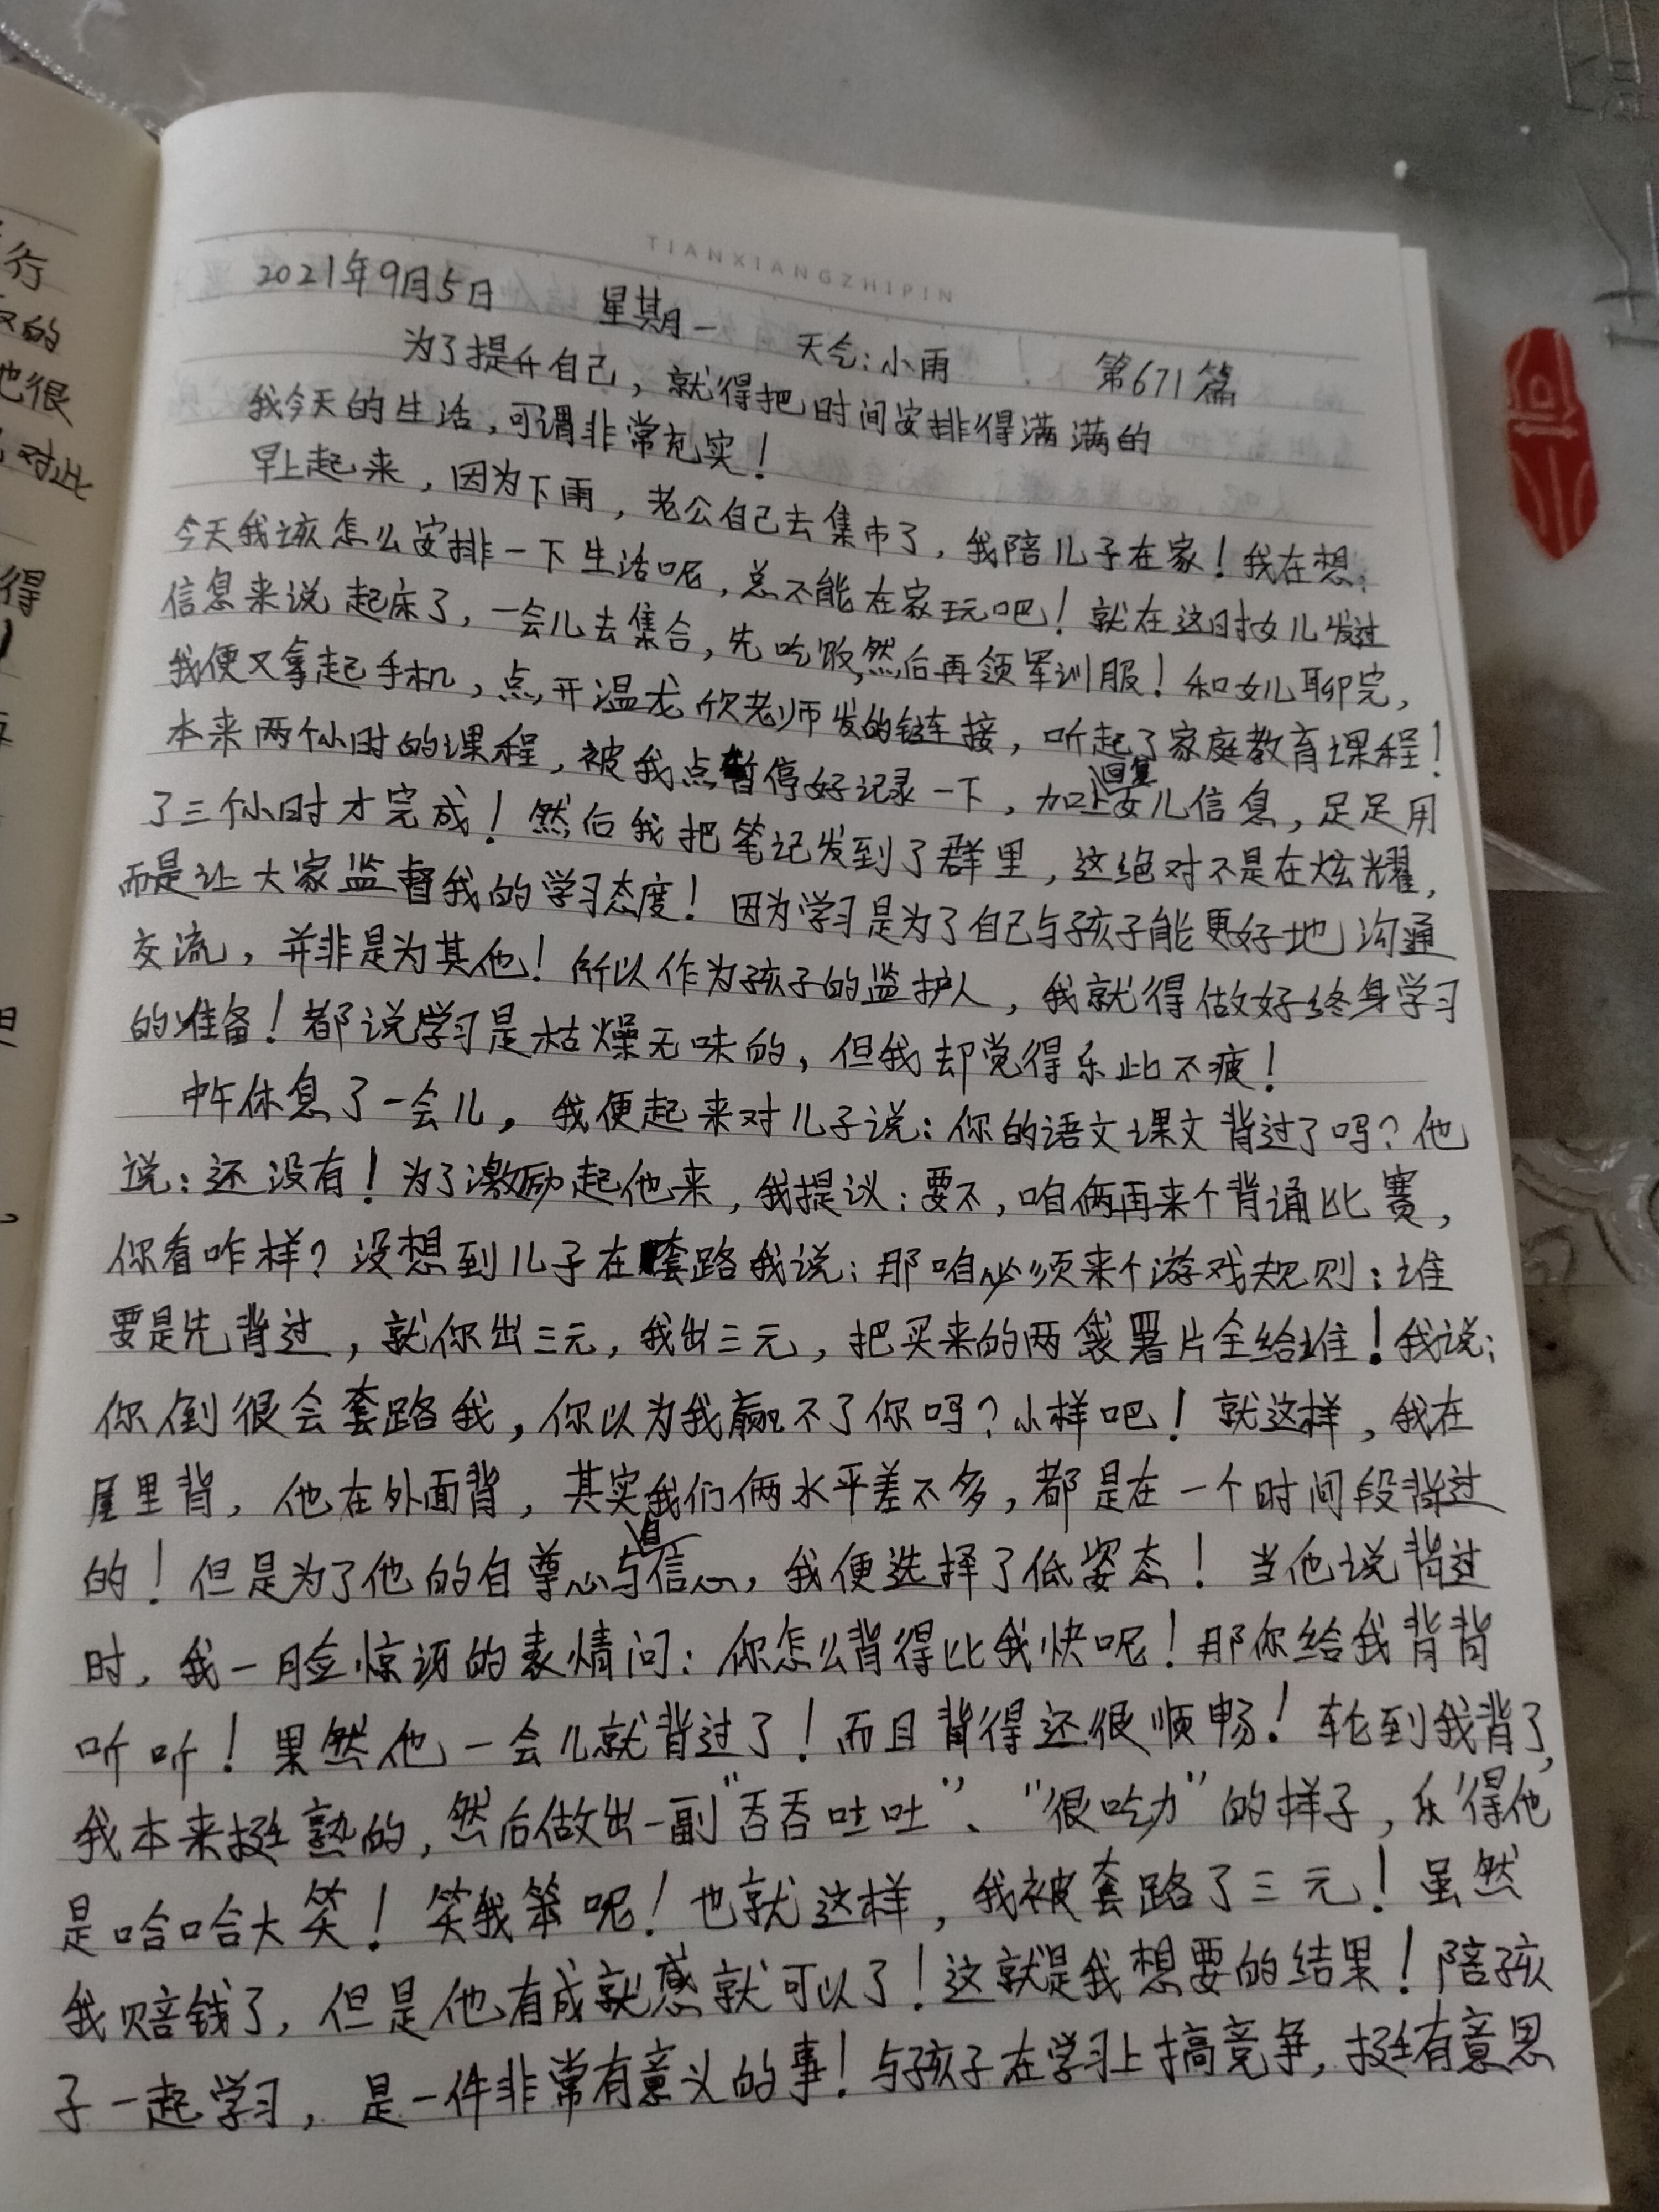 TIANXIANGZHIPIN
2021年9月5日 星期一 天气:小雨 第671篇
为了提升自己,就得把时间安排得满满的
我今天的生活,可谓非常充实!
早上起来,因为下雨,老公自己去集市了,我陪儿子在家!我在想:
今天我该怎么安排一下生活呢,总不能在家玩吧!就在这时女儿发过
信息来说起床了,一会儿去集合,先吃饭,然后再领军训服!和女儿聊完,
我便又拿起手机,点开温龙欣老师发的链接,听起了家庭教育课程!
本来两个小时的课程,被我点暂停好记录一下,加上回复女儿信息,足足用
了三个小时才完成!然后我把笔记发到了群里,这绝对不是在炫耀,
而是让大家监督我的学习态度!因为学习是为了自己与孩子能更好地沟通
交流,并非是为其他!所以作为孩子的监护人,我就得做好终身学习
的准备!都说学习是枯燥无味的,但我却觉得乐此不疲!
中午休息了一会儿,我便起来对儿子说:你的语文课文背过了吗?他
说:还没有!为了激励起他来,我提议:要不,咱俩再来个背诵比赛,
你看咋样?没想到儿子在套路我说:那咱必须来个游戏规则:谁
要是先背过,就你出三元,我出三元,把买来的两袋薯片全给谁!我说:
你倒很会套路我,你以为我赢不了你吗?小样吧!就这样,我在
屋里背,他在外面背,其实我们俩水平差不多,都是在一个时间段背过
的!但是为了他的自尊心与自信心,我便选择了低姿态!当他说背过
时,我一脸惊讶的表情问:你怎么背得比我快呢!那你给我背背
听听!果然他一会儿就背过了!而且背得还很顺畅!轮到我背了,
我本来挺熟的,然后做出一副“吞吞吐吐”、“很吃力”的样子,乐得他
是哈哈大笑!笑我笨呢!也就这样,我被套路了三元!虽然
我赔钱了,但是他有成就感就可以了!这就是我想要的结果!陪孩
子一起学习,是一件非常有意义的事!与孩子在学习上搞竞争,挺有意思
行
的
他很
对此
得